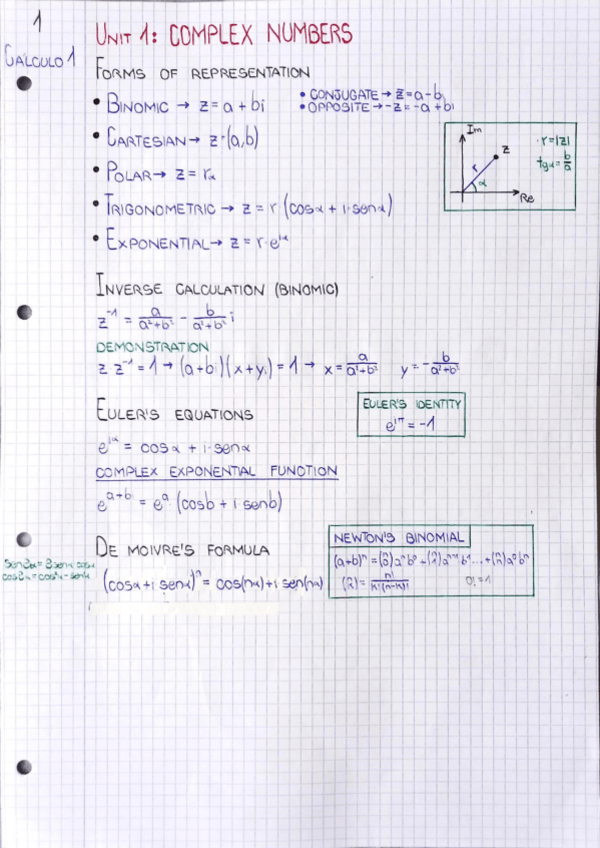 1
CALCULO 1
UNIT 1: COMPLEX NUMBERS
FORMS OF REPRESENTATION
• BINOMIC → z = a + bi
• CONJUGATE → z̄ = a - bi
• OPPOSITE → -z = -a + bi
• CARTESIAN → z = (a,b)
• POLAR → z = r_α
• TRIGONOMETRIC → z = r (cosα + i·senα)
• EXPONENTIAL → z = r·e^iα
Im
z
r
α
Re
r = |z|
tgα = b/a
INVERSE CALCULATION (BINOMIC)
z⁻¹ = a/(a²+b²) - b/(a²+b²) i
DEMONSTRATION
z·z⁻¹ = 1 → (a+bi)(x+yi) = 1 → x = a/(a²+b²) y = -b/(a²+b²)
EULER'S EQUATIONS
e^iα = cosα + i·senα
EULER'S IDENTITY
e^iπ = -1
COMPLEX EXPONENTIAL FUNCTION
e^(a+bi) = e^a (cosb + i senb)
DE MOIVRE'S FORMULA
sen2α = 2senα cosα
cos2α = cos²α - sen²α
(cosα + i senα)^n = cos(nα) + i sen(nα)
NEWTON'S BINOMIAL
(a+b)^n = (n 0) a^n b^0 + (n 1) a^(n-1) b^1 ... + (n n) a^0 b^n
(n k) = n!/(k!(n-k)!) 0! = 1